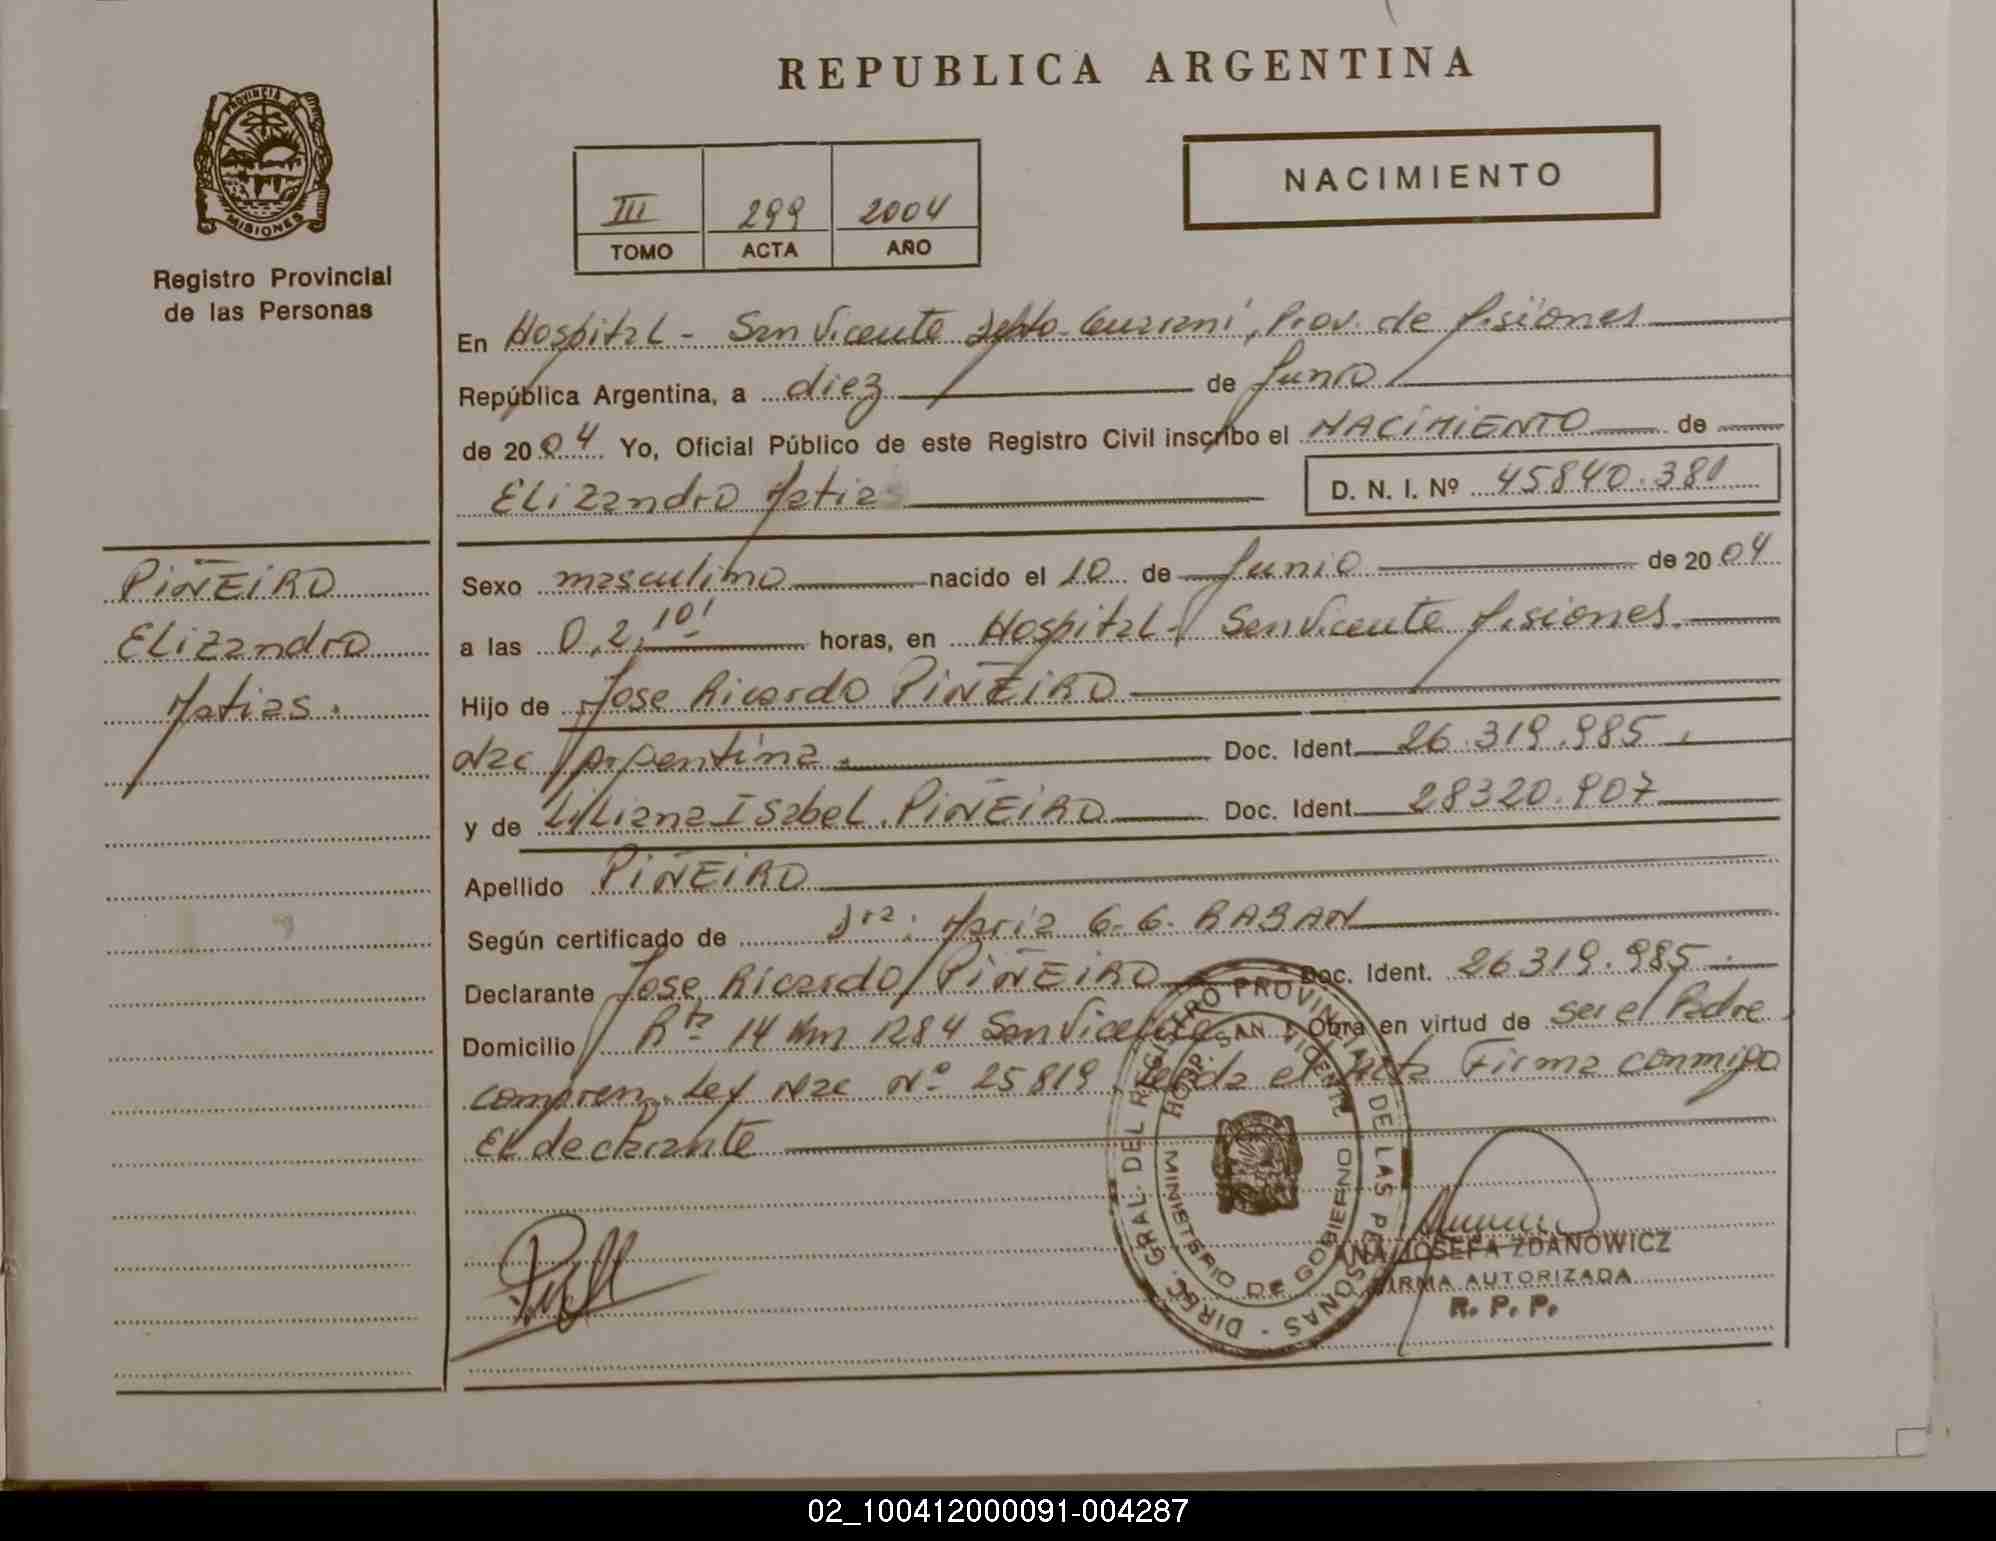 REPUBLICA ARGENTINA
PROVINCIA DE MISIONES
Registro Provincial
de las Personas
III 299 2004
TOMO ACTA AÑO
NACIMIENTO
En Hospital - San Vicente Depto. Guaraní, Prov. de Misiones
República Argentina, a diez de Junio
de 2004 Yo, Oficial Público de este Registro Civil inscribo el NACIMIENTO de
Elizandro Matias D. N. I. Nº 45840.381
PIÑEIRO
Elizandro
Matias.
Sexo masculino nacido el 10 de Junio de 2004
a las 0,2,10' horas, en Hospital - San Vicente Misiones.
Hijo de Jose Ricardo PIÑEIRO
Nac Argentina. Doc. Ident. 26.319.985.
y de Liliana Isabel PIÑEIRO Doc. Ident. 28320.907
Apellido PIÑEIRO
Según certificado de Dra: Maria G. G. RABAN
Declarante Jose Ricardo PIÑEIRO Doc. Ident. 26319.985.
Domicilio Rta 14 Km 1284 San Vicente Obra en virtud de ser el Padre
compren. Ley Nac Nº 25819, Leida el Acta Firma conmigo
El declarante
DIREC. GRAL. DEL REGISTRO PROVINCIAL DE LAS PERSONAS
HOSP. SAN VICENTE
MINISTERIO DE GOBIERNO
ANA JOSEFA ZDANOWICZ
FIRMA AUTORIZADA
R. P. P.
02_100412000091-004287